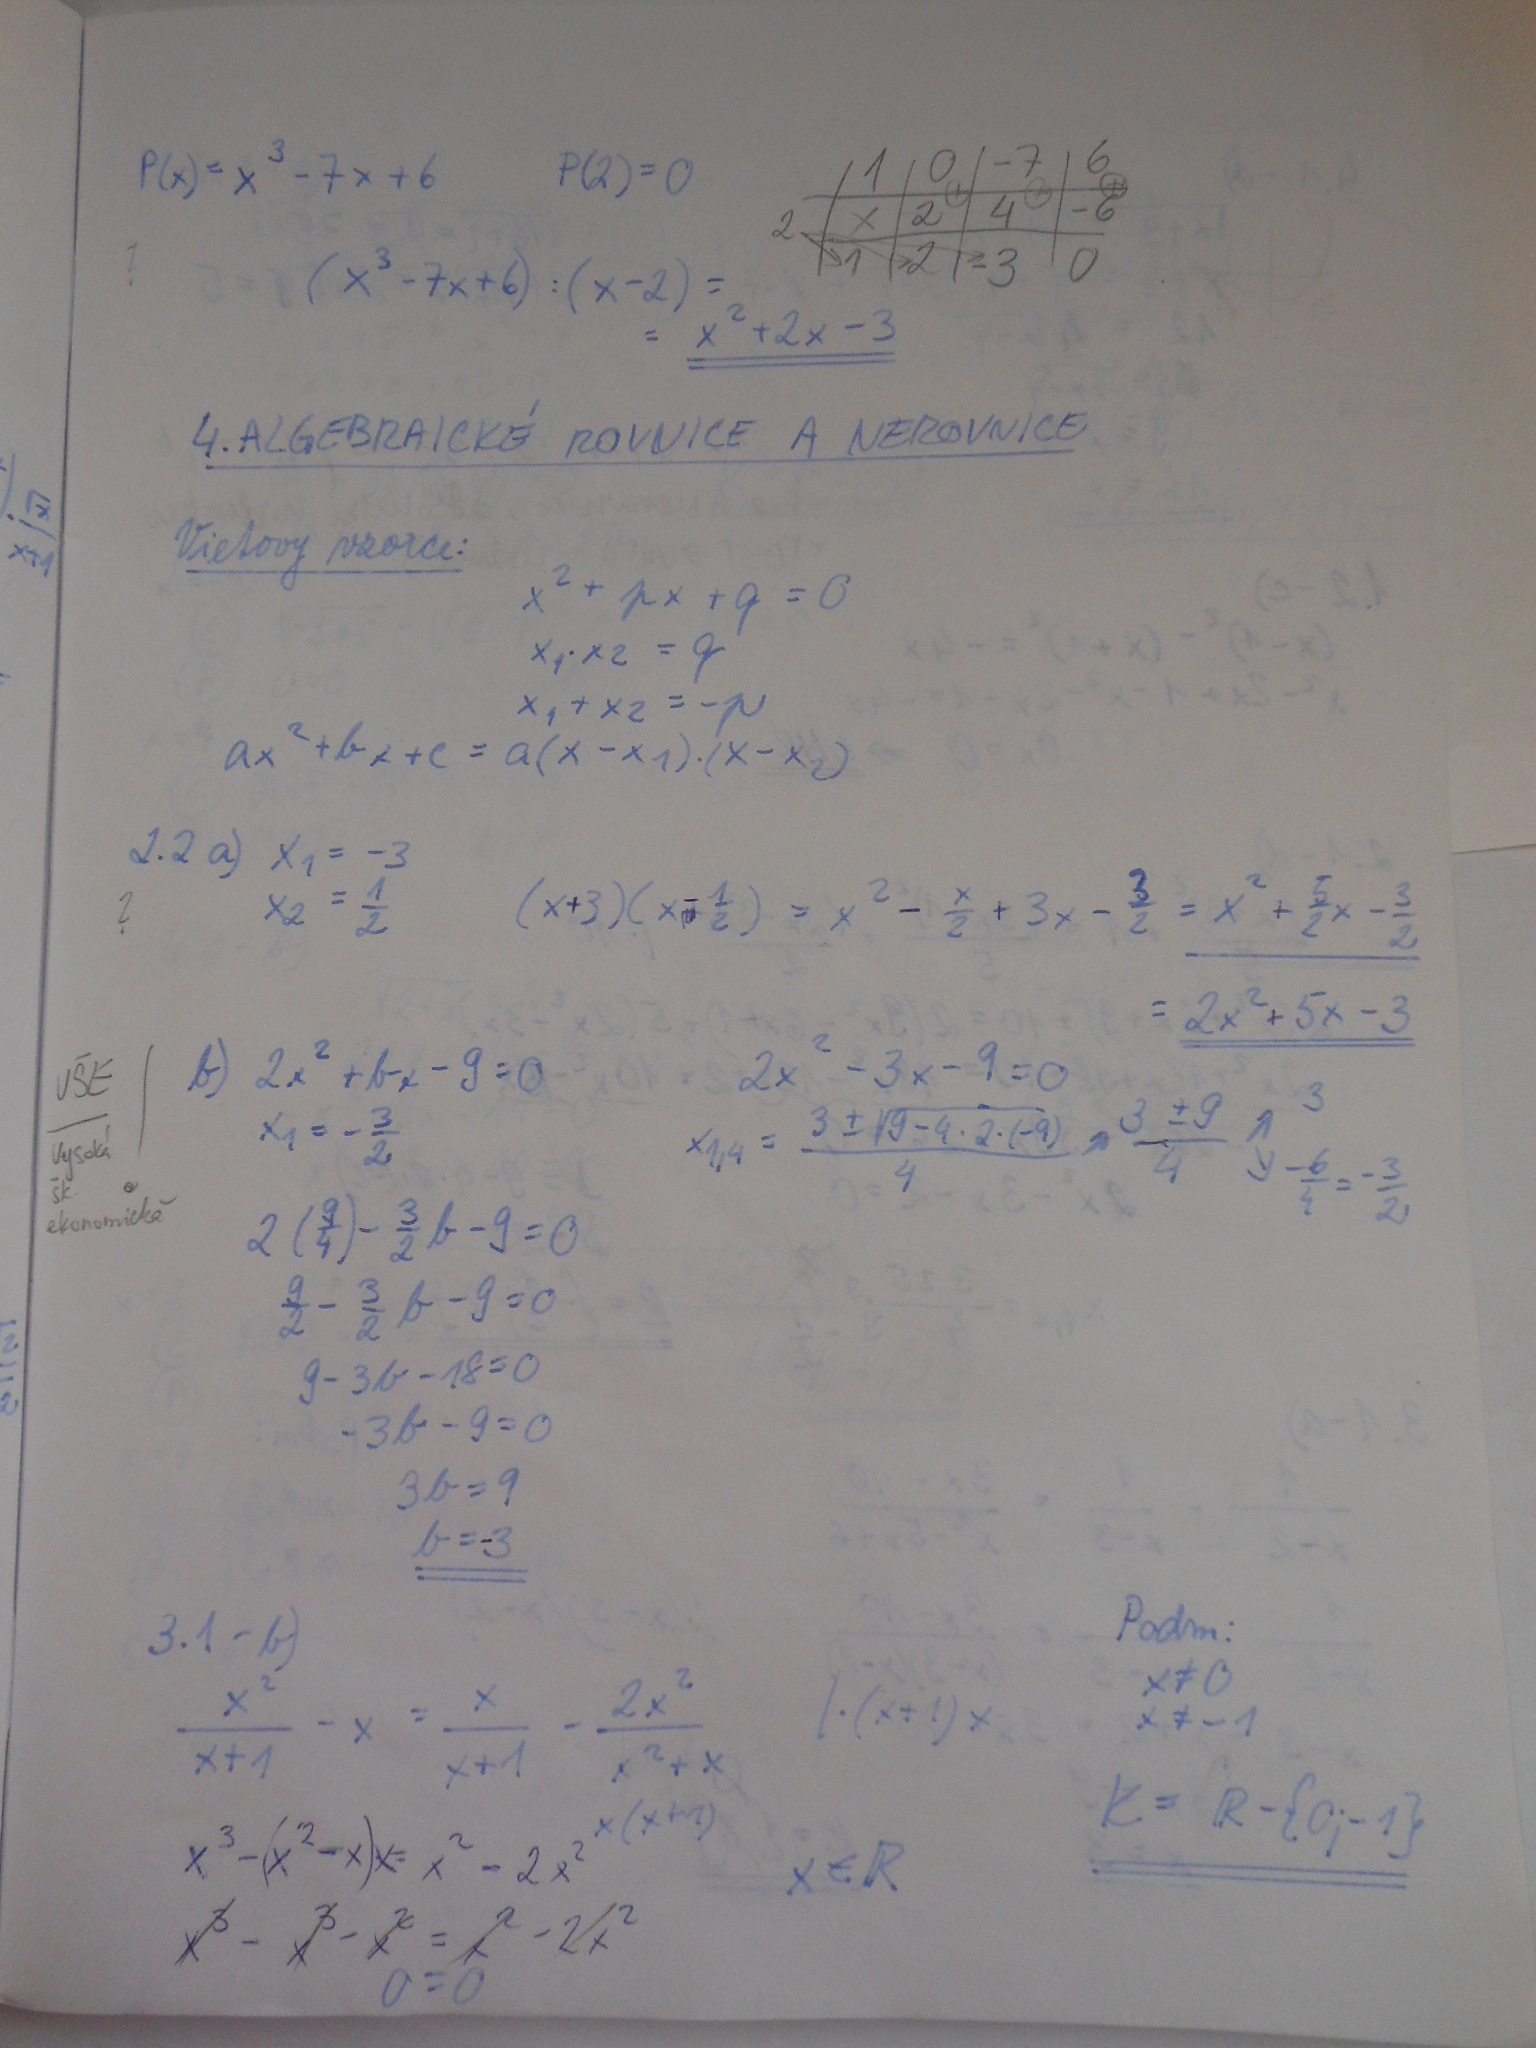 P(x) = x³ - 7x + 6    P(2) = 0
1 | 0 | -7 | 6
2 | x | 2 | 4 | -6
1 | 2 | -3 | 0
?
(x³ - 7x + 6) : (x - 2) =
= x² + 2x - 3
4. ALGEBRAICKÉ ROVNICE A NEROVNICE
Vietovy vzorce:
x² + px + q = 0
x₁ · x₂ = q
x₁ + x₂ = -p
ax² + bx + c = a(x - x₁)·(x - x₂)
2.2 a) x₁ = -3
? x₂ = 1/2    (x+3)(x - 1/2) = x² - x/2 + 3x - 3/2 = x² + 5/2x - 3/2
= 2x² + 5x - 3
VŠE
Vysoká
šk.
ekonomická
b) 2x² + bx - 9 = 0    2x² - 3x - 9 = 0
x₁ = -3/2    x₁,₄ = (3 ± √(9 - 4·2·(-9)))/4 ↗ (3 ± 9)/4 ↗ 3
↘ -6/4 = -3/2
2(9/4) - 3/2 b - 9 = 0
9/2 - 3/2 b - 9 = 0
9 - 3b - 18 = 0
-3b - 9 = 0
3b = 9
b = -3
3.1 - b)
x²/(x+1) - x = x/(x+1) - 2x²/(x²+x)    / ·(x+1)x
x(x+1)
Podm:
x ≠ 0
x ≠ -1
x³ - (x² - x)x = x² - 2x²    x ∈ R    K = R - {0; -1}
x³ - x³ - x² = x² - 2x²
0 = 0